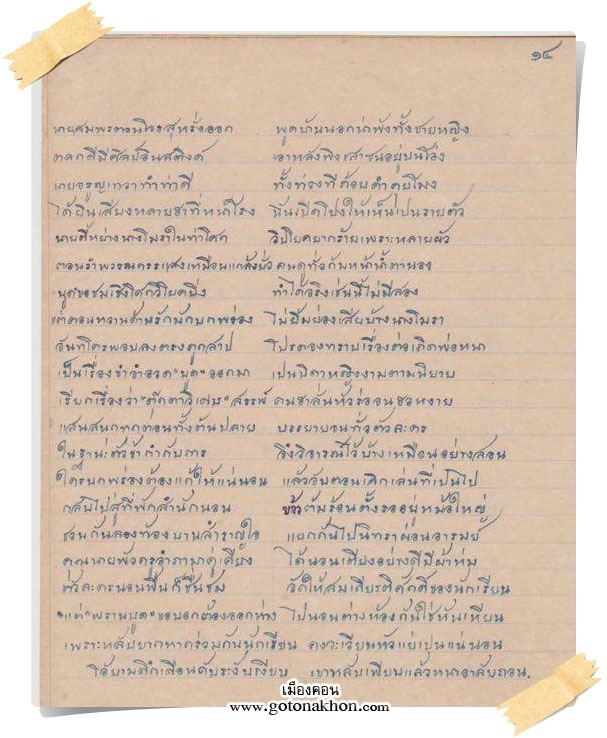 ๑๔
นายสมพรตอนโจรสุหรั่งออก พูดบ้านนอกน่าฟังทั้งชายหญิง
ตลกดีมีศิลป์อินสติงค์ เอาหลังพิงเสาชนอยู่บนโล่ง
นายจรูญเทวาทำท่าดี ทั้งท่วงทีถ้อยคำคมโมง
ได้ยินเสียงหลายฮาที่หน้าโรง นั่นเปิดโปงให้เห็นเป็นรายตัว
นายศรีหย่างนางโมราในท่าโศก วิปโยคยากร้ายเพราะหลายผัว
ตอนรำพรรณกรรแสงเหมือนแกล้งยั่ว คนดูทั่วกันหน้าน้ำตานอง
"บูด"ขอชมเชิงโศกวิโยคยิ่ง ทำได้จริงเช่นนี้ไม่มีสอง
แต่ตอนหวานด้านรักมักบกพร่อง ไม่ยิ้มย่องเสียบ้างนางโมรา
จันทโครพจบลงตรงถูกสาป โปรดจงทราบเรื่องต่อเถิดพ่อหนา
เป็นเรื่องขำจำอวด "บูด" ออกมา เปนบิดาหญิงงามตามนิยาย
เรียกเรื่องว่า "ตุ๊กตาวิเศษ" สรรพ์ คนฮาลั่นหัวร่องอนขอหงาย
แสนสนุกทุกตอนทั้งต้นปลาย บรรยายจนทั่วตัวลคร
ในฐานะตัวข้ากำกับการ จึงวิจารณ์ไว้บ้างเหมือนอย่างสอน
ใครบกพร่องต้องแก้ให้แน่นอน แล้วจับตอนเลิกเล่นที่เป็นไป
กลับไปสู่ที่พักสำนักนอน ข้าวต้มร้อนตั้งรออยู่หม้อใหญ่
ชวนกันลองท้องบานสำราญใจ แยกกันไปนิทราผ่อนอารมย์
คณะนายพัวครูจำภามาคู่เคียง ได้นอนเตียงอย่างดีมีผ้าห่ม
ตัวละครนอนพื้นก็ชื่นชม จัดให้สมเกียรติศักดิ์ของนักเรียน
"แต่" พรานบูด" ขอบอกต้องออกห่าง ไปนอนต่างห้องกันใช่หันเหียน
เพราะหลับยากหากร่วมกับนักเรียน คงวะเวียนหัวแย่เปนแน่นอน
โอ้ยามดึกเดือนดับระงับเงียบ เขาหลับเพียบแล้วหนาอาลัยถอน.
เมืองคอน
www.gotonakhon.com